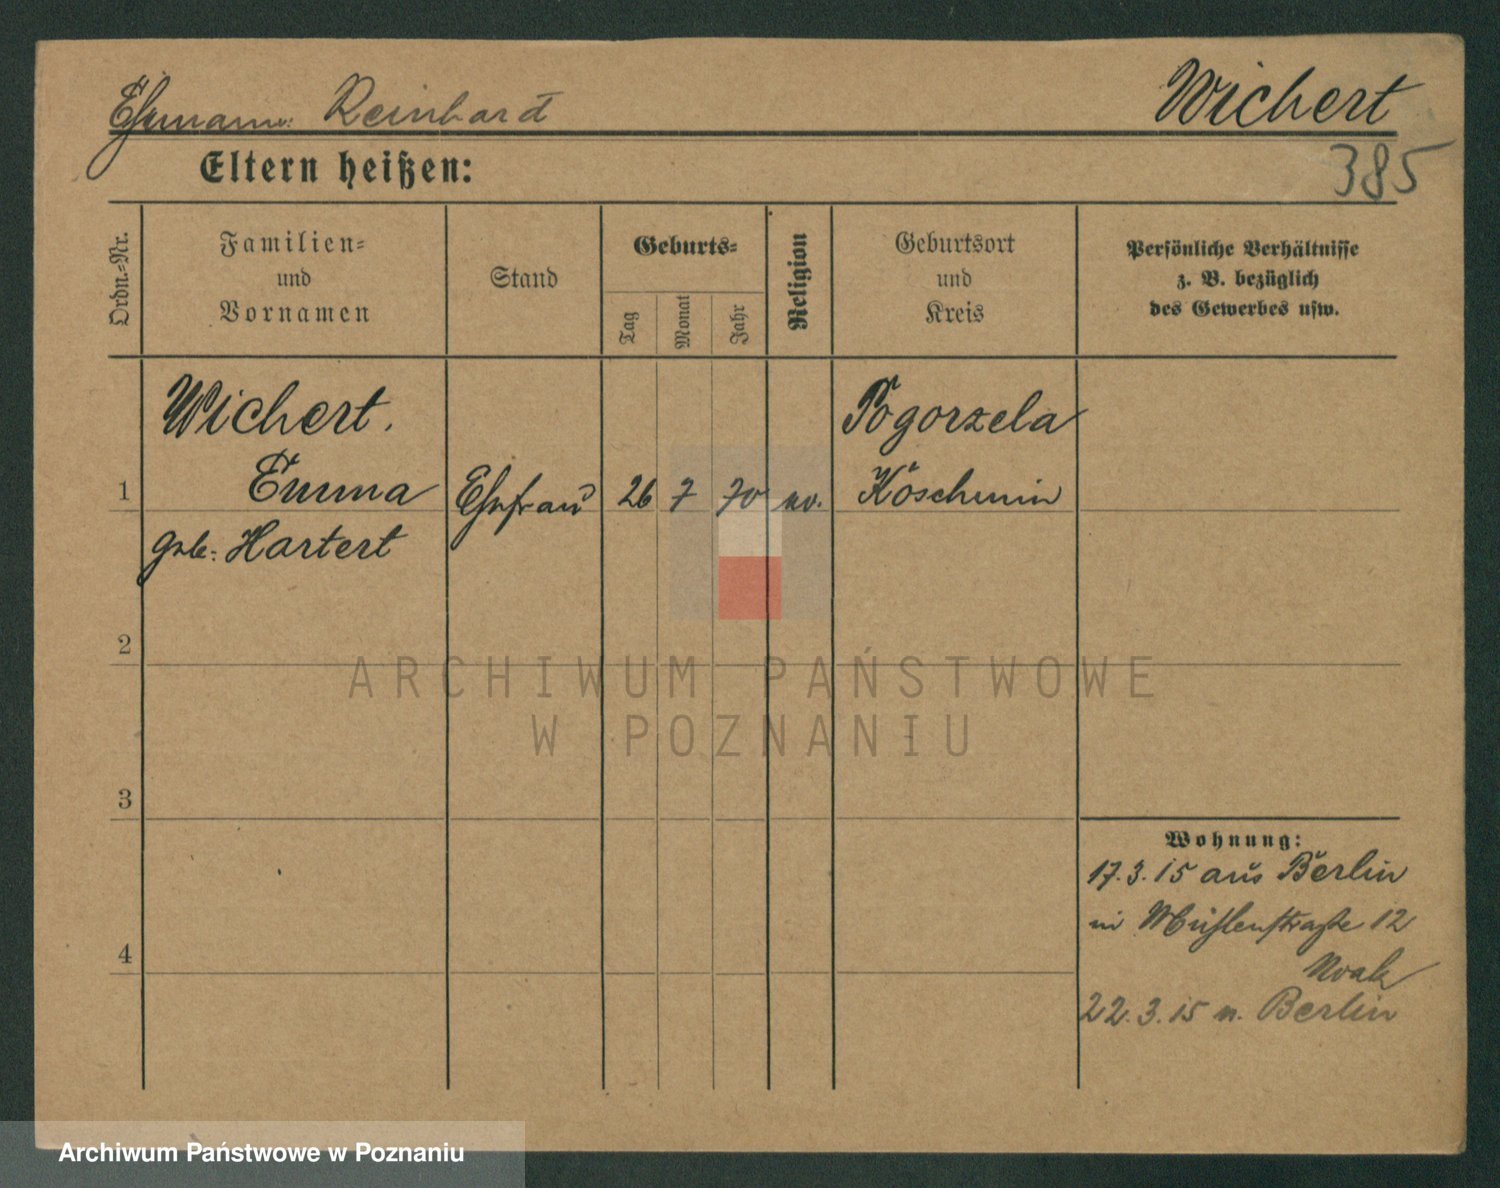 Ehemann: Reinhard
Wichert
Eltern heißen:
385
Ordn.-Nr.
Familien-
und
Vornamen
Stand
Geburts-
Tag
Monat
Jahr
Religion
Geburtsort
und
Kreis
Persönliche Verhältnisse
z. B. bezüglich
des Gewerbes usw.
Wichert.
Pogorzela
1 Emma Ehefrau 26 7 70 ev. Koschmin
geb. Hartert
2
ARCHIWUM PAŃSTWOWE
W POZNANIU
3
Wohnung:
17.3.15 aus Berlin
in Mühlenstraße 12
Noak
4
22.3.15 n. Berlin
Archiwum Państwowe w Poznaniu